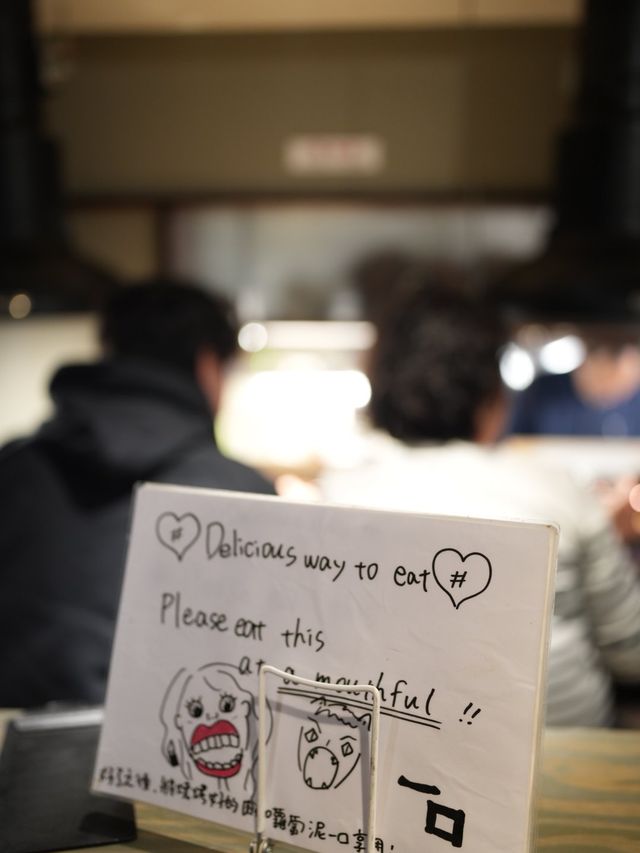 # Delicious way to eat #
Please eat this
at a mouthful !!
一口
蘿蔔泥一口享用!